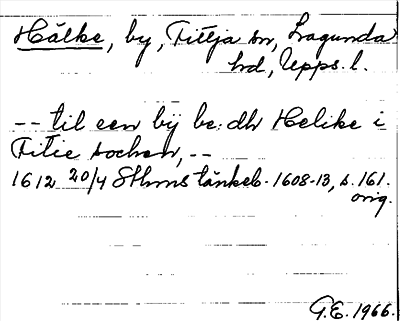 Hälke, by, Fittja sn, Lagunda
hd, Upps. l.
-- til een bÿ be:dh Helike i
Fitie sochen, --
1612 20/4 Sthms tänkeb. 1608-13, s. 161.
orig.
G.E. 1966.